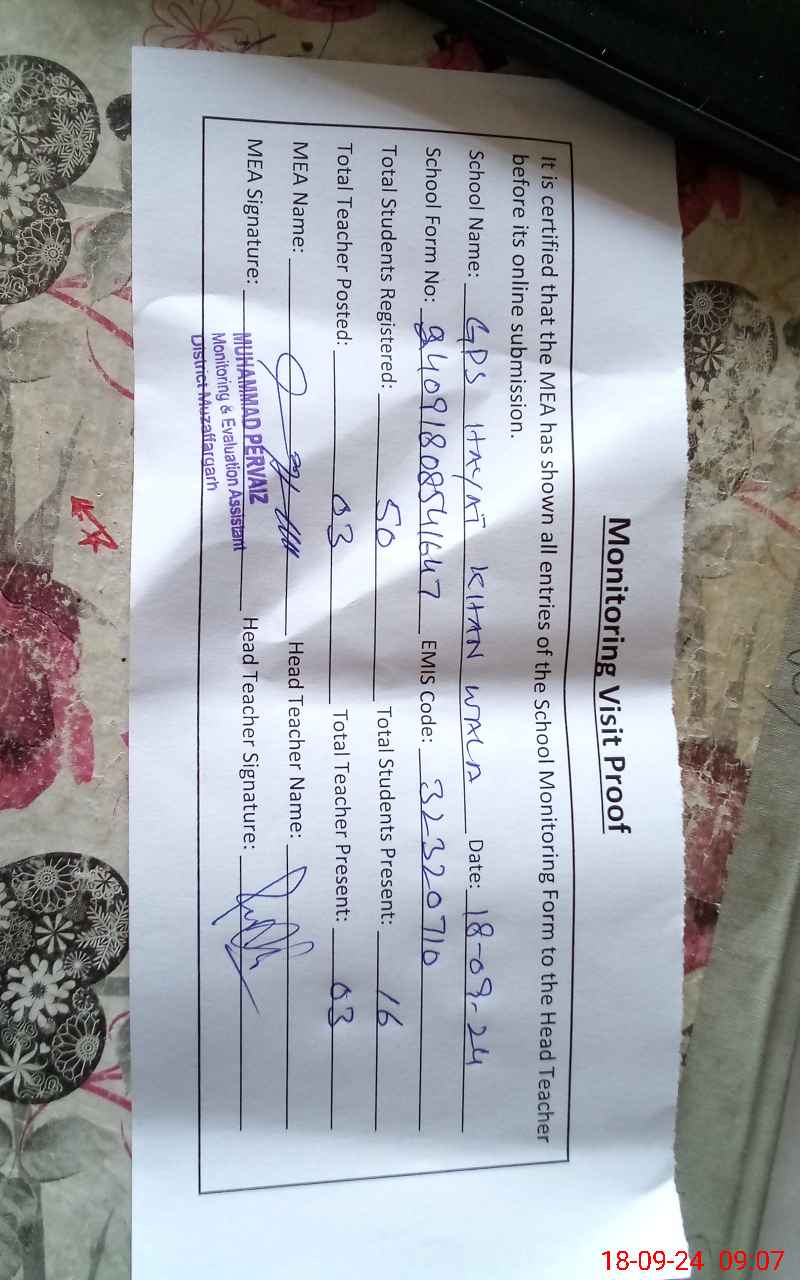 Monitoring Visit Proof
It is certified that the MEA has shown all entries of the School Monitoring Form to the Head Teacher
before its online submission.
School Name: GPS HAYAT KHAN WALA Date: 18-09-24
School Form No: 94091808541647 EMIS Code: 32320710
Total Students Registered: 50 Total Students Present: 16
Total Teacher Posted: 03 Total Teacher Present: 03
MEA Name: Head Teacher Name:
MEA Signature: Head Teacher Signature:
MUHAMMAD PERVAIZ
Monitoring & Evaluation Assistant
District Muzaffargarh
18-09-24 09:07